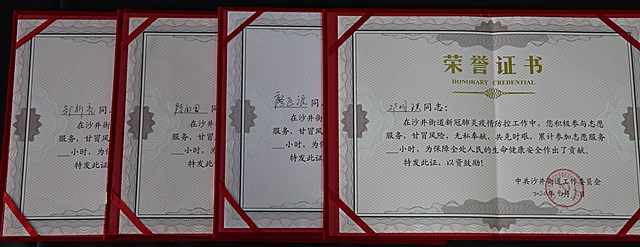 同
在沙井
服务，甘冒风
小时，为
特发
同
在沙
服务，甘冒风
小时，为保
特发此
同
在沙
服务，甘冒风
小时，为
特发此证
荣誉证书
HONORARY CREDENTIAL
同志：
在沙井街道新冠肺炎疫情防控工作中，您积极参与志愿
服务，甘冒风险，无私奉献，共克时艰，累计参加志愿服务
小时，为保障全处人民的生命健康安全作出了贡献。
特发此证，以资鼓励！
中共沙井街道工作委员会